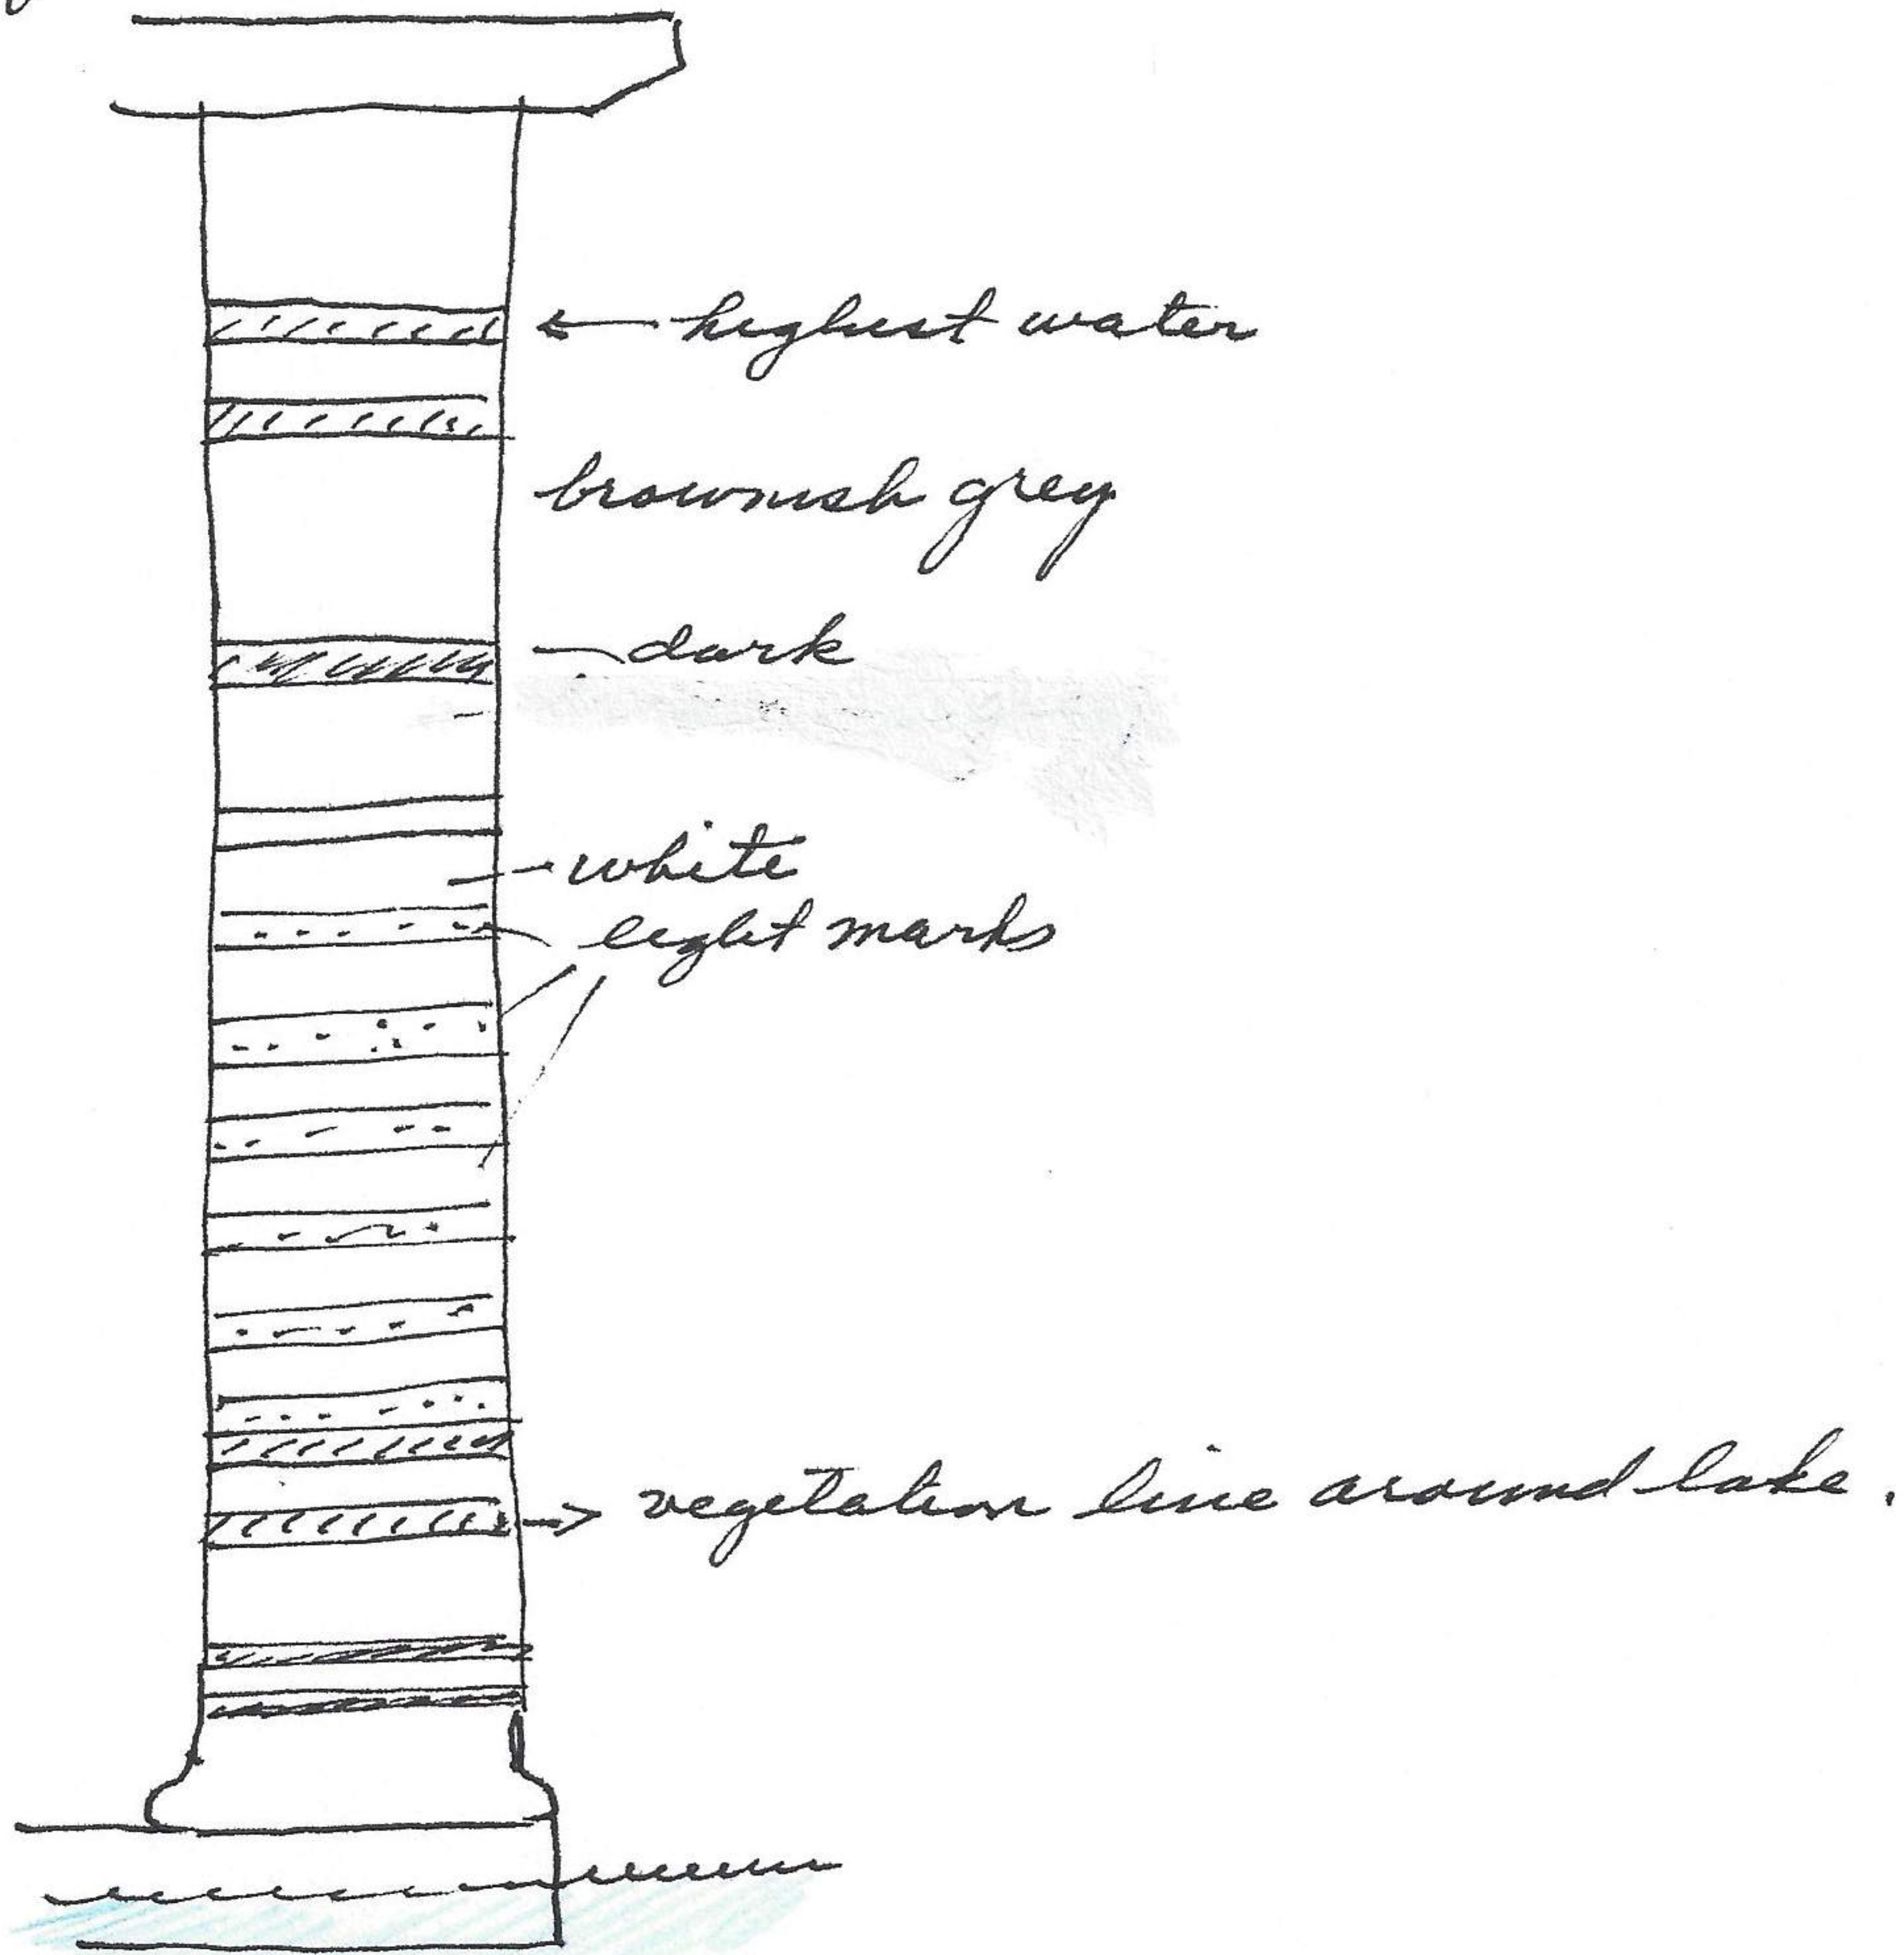 highest water
brownish grey
dark
white
light marks
vegetation line around lake.